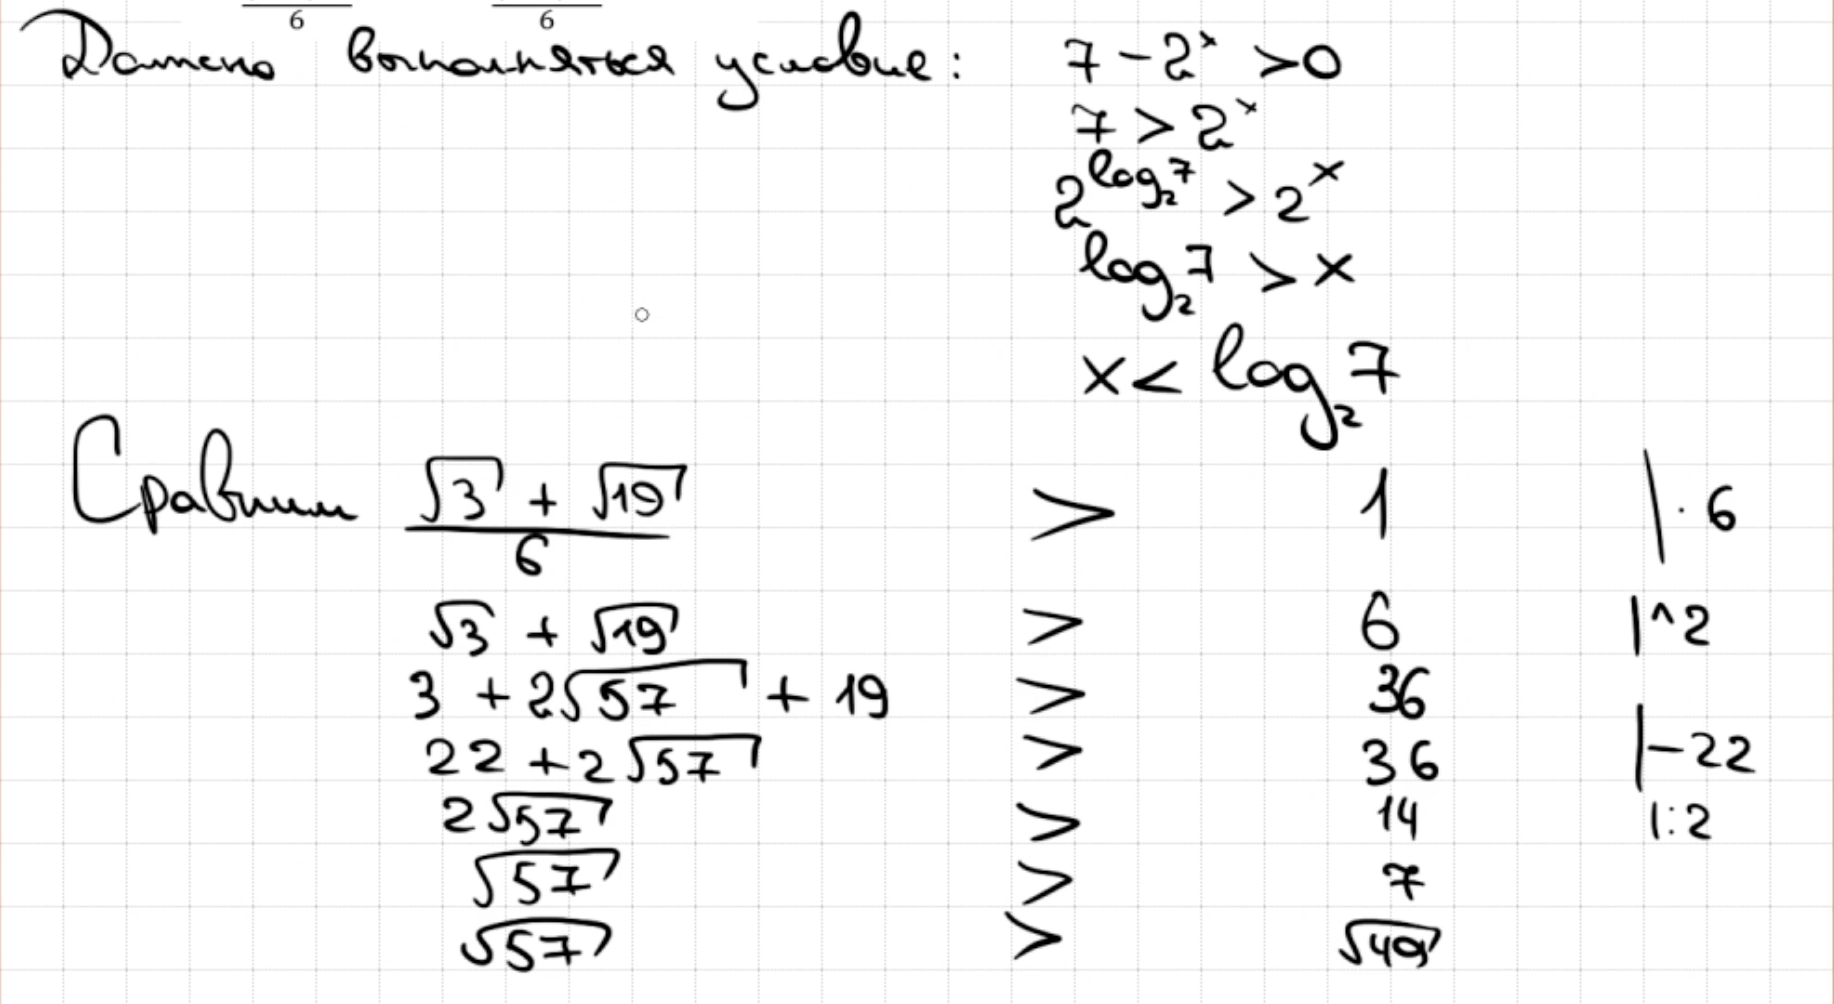 6 6
Должно выполняться условие: 7 - 2^x > 0
7 > 2^x
2^{log_2 7} > 2^x
log_2 7 > x
x < log_2 7
Сравним (√3 + √19)/6 > 1 | · 6
√3 + √19 > 6 | ^2
3 + 2√57 + 19 > 36
22 + 2√57 > 36 | -22
2√57 > 14 | : 2
√57 > 7
√57 > √49